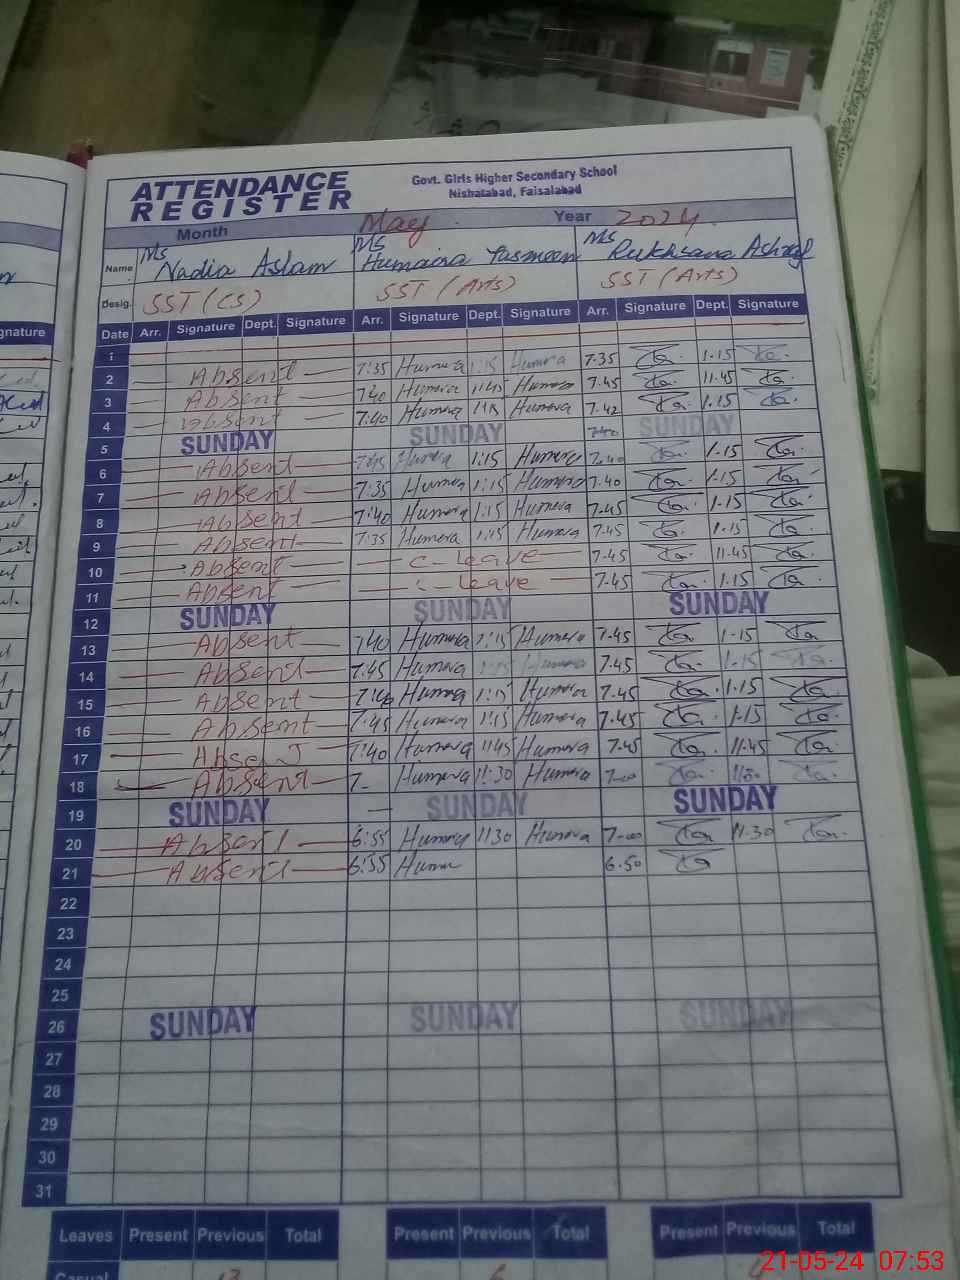 ATTENDANCE REGISTER
Govt. Girls Higher Secondary School
Nishatabad, Faisalabad
Month May Year 2024
Name Ms Nadia Aslam Ms Humaira Yasmeen Ms Rukhsana Ashraf
Desig. SST (CS) SST (Arts) SST (Arts)
Date Arr. Signature Dept. Signature Arr. Signature Dept. Signature Arr. Signature Dept. Signature
1
2 Absent 7:35 Humera 1:15 Humera 7.35 1.15
3 Absent 7:40 Humera 11:45 Humera 7.45 11.45
4 Absent 7:40 Humera Humera 7.42 1.15
5 SUNDAY SUNDAY SUNDAY
6 Absent 7:45 Humera 1:15 Humera 7.40 1.15
7 Absent 7:35 Humera 1:15 Humera 7.40 1.15
8 Absent 7:40 Humera 1:15 Humera 7.45 1.15
9 Absent 7:35 Humera 1:15 Humera 7.45 1.15
10 Absent C. Leave 7.45 11.45
11 Absent C. Leave 7.45 1.15
12 SUNDAY SUNDAY SUNDAY
13 Absent 7:40 Humera 1:15 Humera 7.45 1.15
14 Absent 7:45 Humera Humera 7.45 1.15
15 Absent 7:40 Humera 1:15 Humera 7.45 1.15
16 Absent 7:45 Humera 1:15 Humera 7.45 1.15
17 Absent 7:40 Humera 11:45 Humera 7.45 11.45
18 Absent 7 Humera 11:30 Humera
19 SUNDAY SUNDAY SUNDAY
20 Absent 6:55 Humera 11:30 Humera 7.00 11.30
21 Absent 6:55 Hum 6.50
22
23
24
25
26 SUNDAY SUNDAY SUNDAY
27
28
29
30
31
Leaves Present Previous Total Present Previous Total Present Previous Total
Casual 13 6
21-05-24 07:53